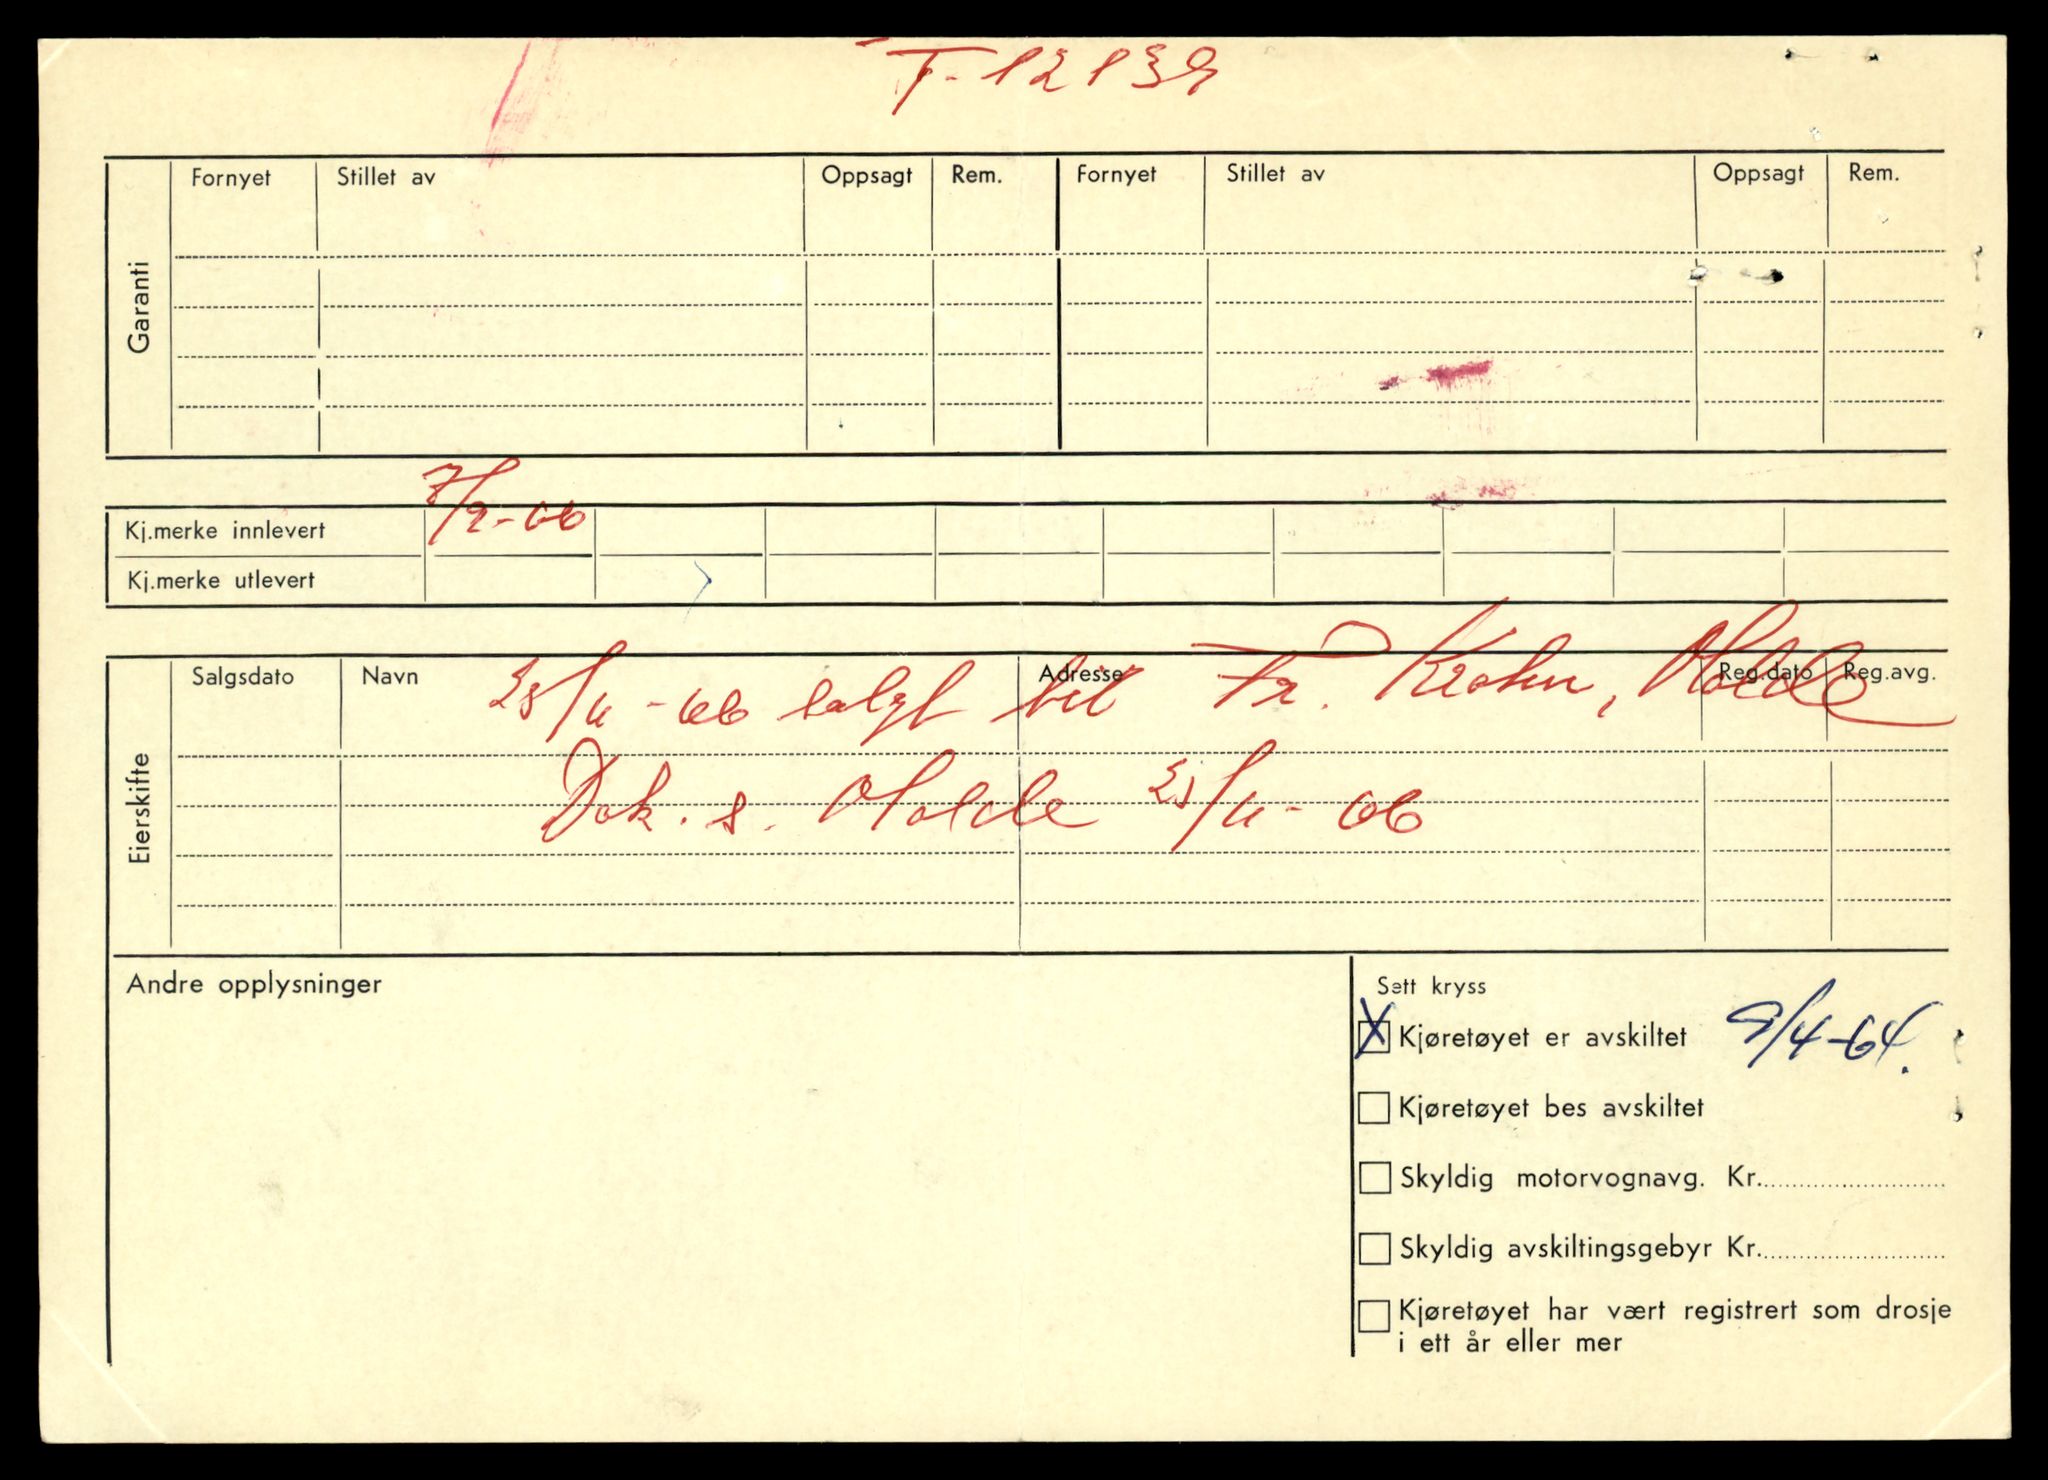 T-12139
Garanti
Fornyet Stillet av Oppsagt Rem. Fornyet Stillet av Oppsagt Rem.
7/2-66
Kj.merke innlevert
Kj.merke utlevert
Eierskifte
Salgsdato Navn Adresse Reg.dato Reg.avg.
25/11-66 solgt til Fr. Krohn, Molde
Dok. s. Molde 25/11-66
Andre opplysninger
Sett kryss
X Kjøretøyet er avskiltet 9/4-64.
Kjøretøyet bes avskiltet
Skyldig motorvognavg. Kr.
Skyldig avskiltingsgebyr Kr.
Kjøretøyet har vært registrert som drosje
i ett år eller mer